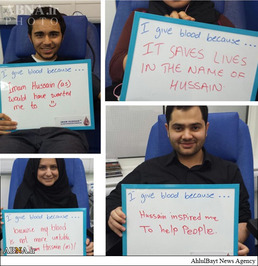 ABNA.ir
PHOTO
I give blood because...
Imam Hussain (as)
would have wanted
me to
I give blood because...
IT SAVES LIVES
IN THE NAME OF
HUSSAIN
I give blood because...
because my blood
is not more
Hussain (as)!
I give blood because...
Hussain inspired me
To help People.
AhlulBayt News Agency